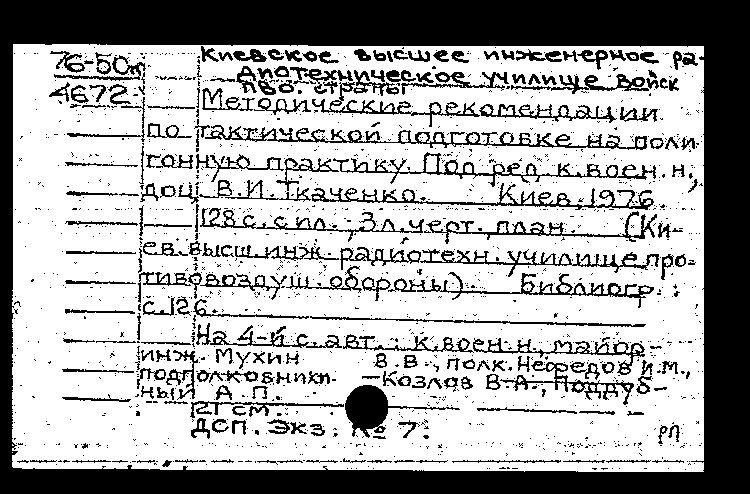 76-50л
4672
Киевское высшее инженерное ра-
диотехническое училище войск
пво. страны
Методические рекомендации
по тактической подготовке на поли
гонную практику. Под ред. к.воен.н.,
доц. В.И.Ткаченко. Киев, 1976.
128 с. с ил.; 3 л. черт., план. (Ки-
ев. высш. инж. радиотехн. училище про-
тивовоздуш. обороны). Библиогр.:
с.126.
На 4-й с. авт.: к.воен.н., майор-
инж. Мухин В.В., полк. Нефедов И.М.,
подполковники Козлов В.А., Поддуб-
ный А.П.
21 см.
ДСП. Экз. № 7.
РП